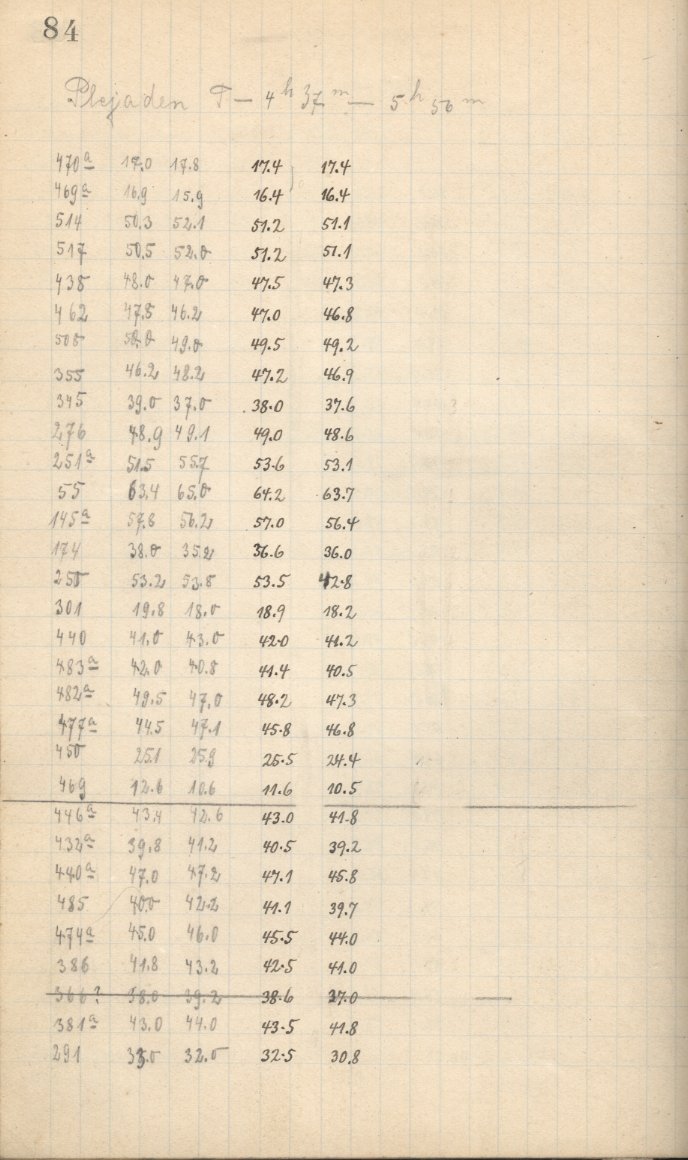 84
Plejaden T – 4 h 37 m – 5 h 56 m
470a 17.0 17.8 17.4 17.4
469a 16.9 15.9 16.4 16.4
514 50.3 52.1 51.2 51.1
517 50.5 52.0 51.2 51.1
438 48.0 47.0 47.5 47.3
462 47.8 46.2 47.0 46.8
508 50.0 49.0 49.5 49.2
355 46.2 48.2 47.2 46.9
345 39.0 37.0 38.0 37.6
276 48.9 49.1 49.0 48.6
251a 51.5 55.7 53.6 53.1
55 63.4 65.0 64.2 63.7
145a 57.8 56.2 57.0 56.4
174 38.0 35.2 36.6 36.0
250 53.2 53.8 53.5 42.8
301 19.8 18.0 18.9 18.2
440 41.0 43.0 42.0 41.2
483a 42.0 40.8 41.4 40.5
482a 49.5 47.0 48.2 47.3
477a 44.5 47.1 45.8 46.8
450 25.1 25.9 25.5 24.4
469 12.6 10.6 11.6 10.5
446a 43.4 42.6 43.0 41.8
432a 39.8 41.2 40.5 39.2
440a 47.0 47.2 47.1 45.8
485 40.0 42.2 41.1 39.7
474a 45.0 46.0 45.5 44.0
386 41.8 43.2 42.5 41.0
366? 38.0 39.2 38.6 37.0
381a 43.0 44.0 43.5 41.8
291 33.0 32.0 32.5 30.8